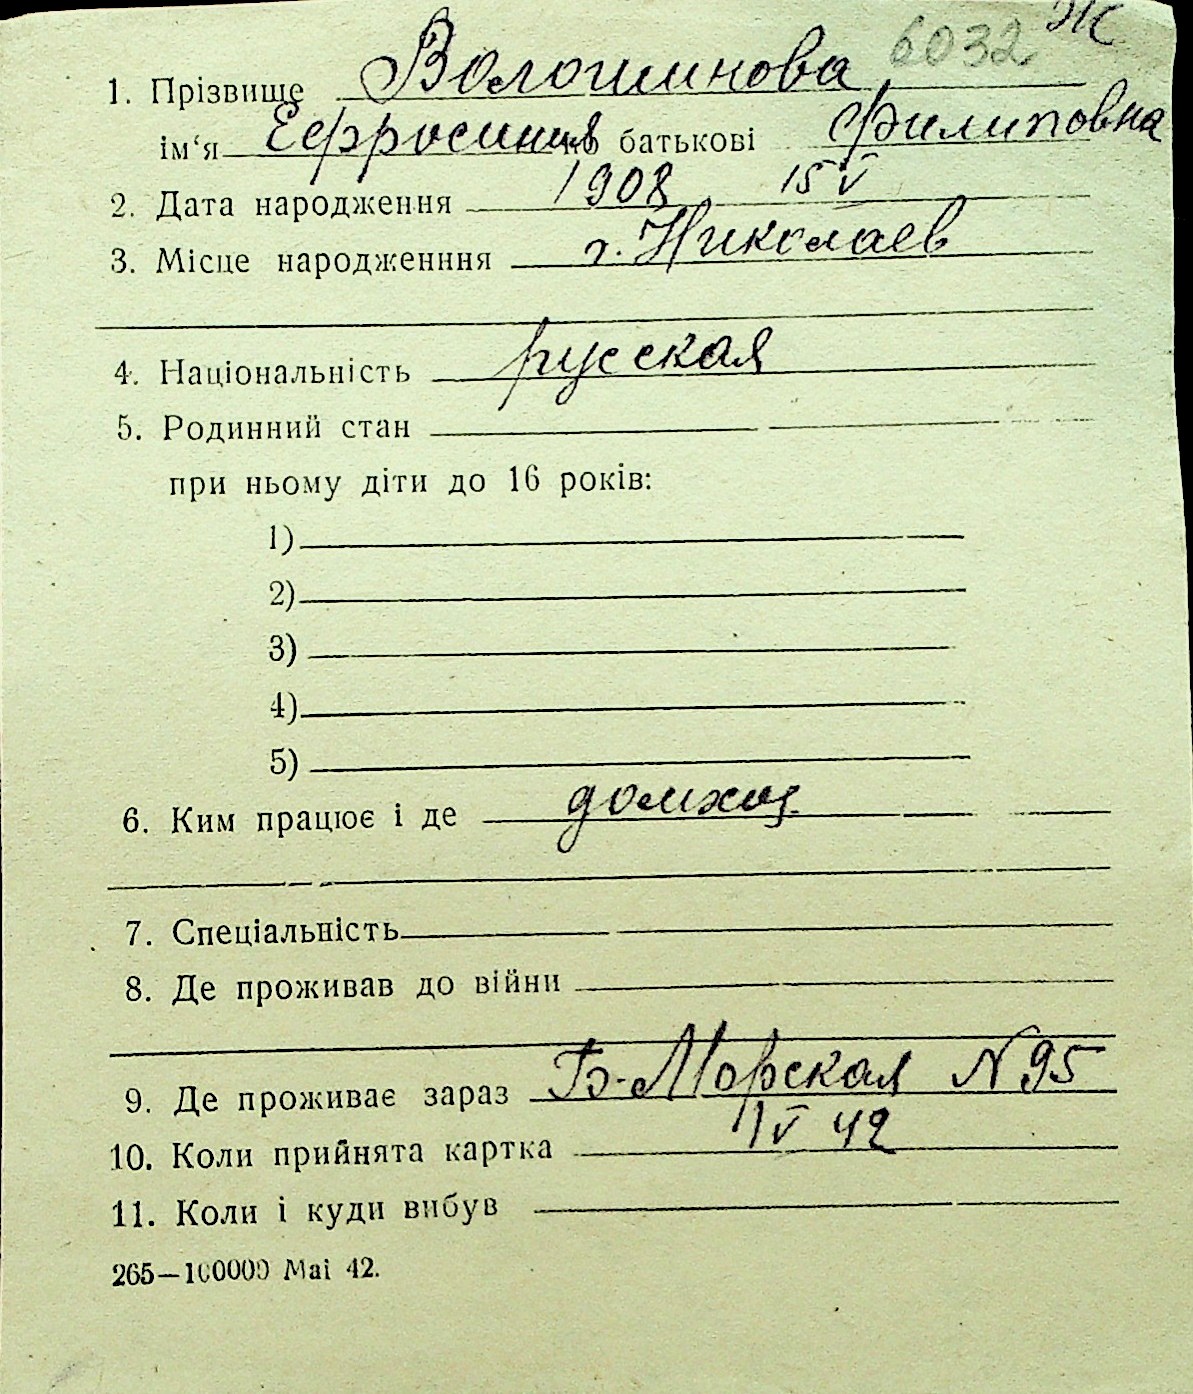 6032 Ж
1. Прізвище Волошинова
ім'я Ефросиния в батькові Филиповна
2. Дата народження 1908 15 V
3. Місце народженння г. Николаев
4. Національність русская
5. Родинний стан
при ньому діти до 16 років:
1)
2)
3)
4)
5)
6. Ким працює і де домхоз.
7. Спеціальність
8. Де проживав до війни
9. Де проживає зараз Б-Морская N 95
10. Коли прийнята картка V 42
11. Коли і куди вибув
265—100000 Mai 42.